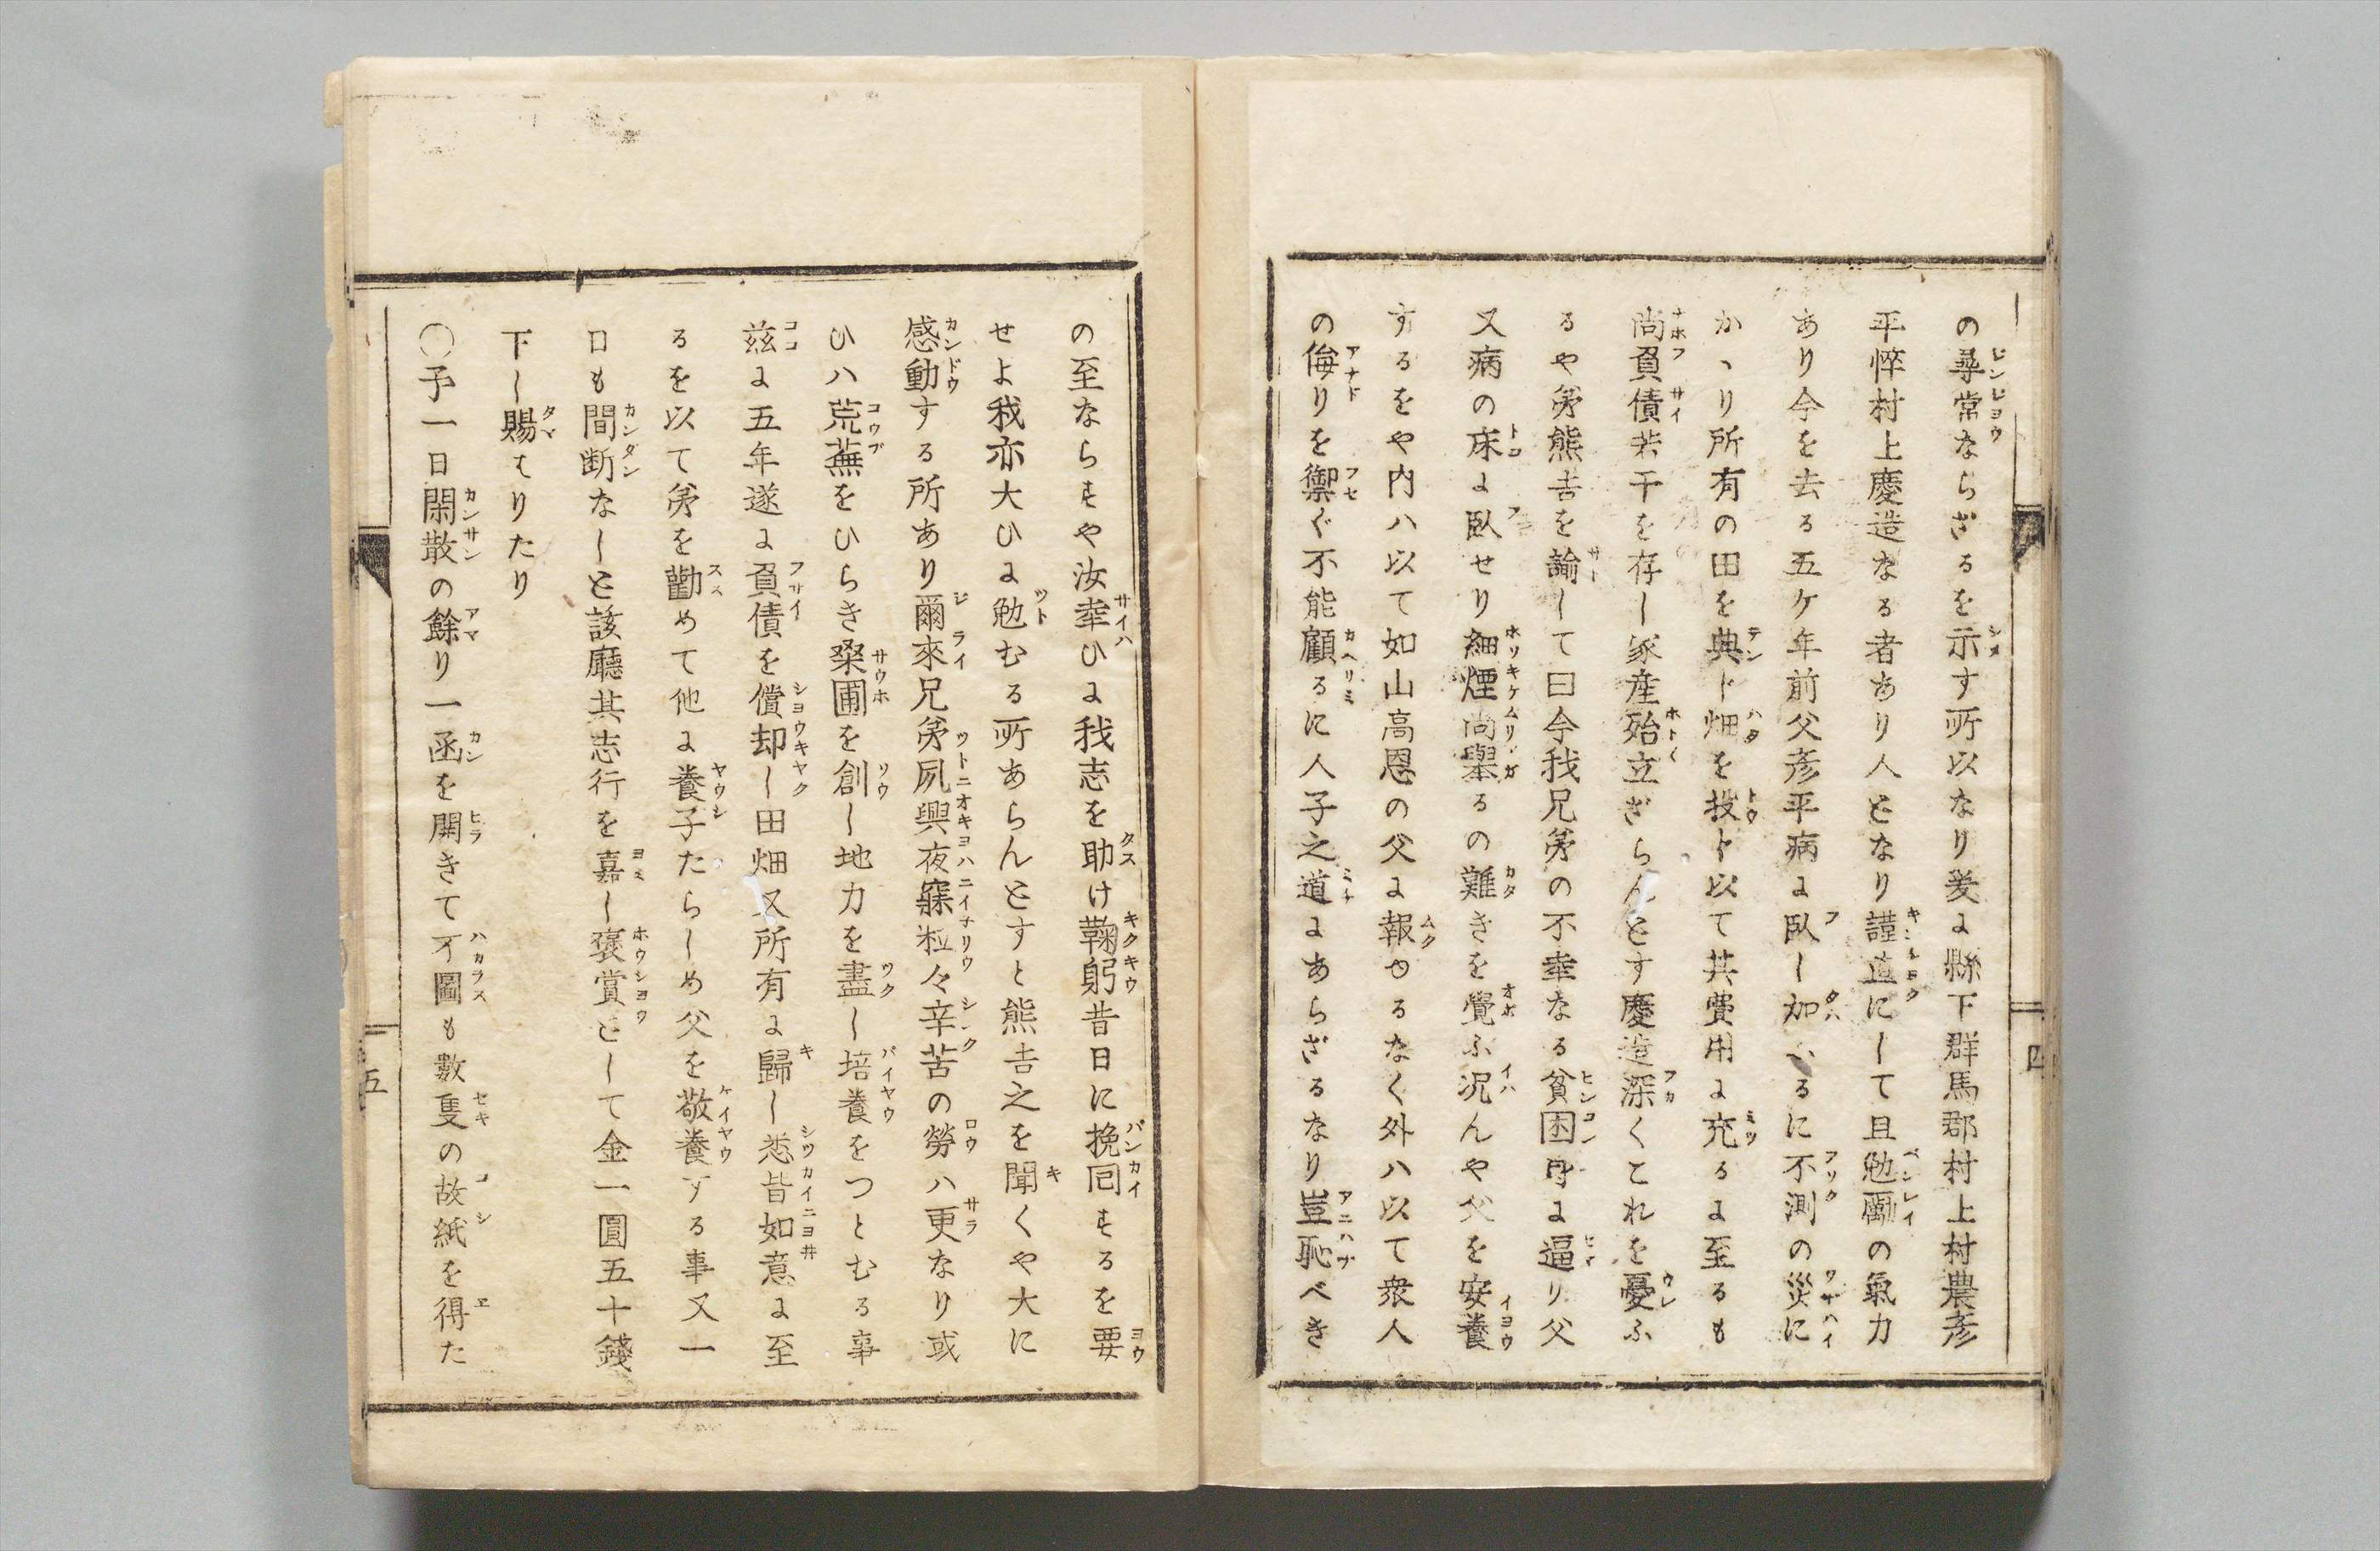 の尋常ならざるを示す所以なり爰に縣下群馬郡村上村農彦
平悴村上慶造なる者あり人となり謹直にして且勉勵の氣力
あり今を去る五ケ年前父彦平病に臥し加ふるに不測の災に
かヽり所有の田を典じ畑を投ト以て其費用に充るに至るも
尚負債若干を存し家産殆立ざらんとす慶造深くこれを憂ふ
るや弟熊吉を諭して曰今我兄弟の不幸なる貧困身に逼り父
又病の床に臥せり細煙尚擧るの難きを覺ふ况んや父を安養
するをや内ハ以て如山高恩の父に報ゆるなく外ハ以て衆人
の侮りを禦ぐ不能顧るに人子之道にあらざるなり豈恥べき
四
の至ならすや汝幸ひに我志を助け鞠躬昔日に挽回するを要
せよ我亦大ひに勉むる所あらんとすと熊吉之を聞くや大に
感動する所あり爾來兄弟夙興夜寐粒々辛苦の勞ハ更なり或
ひハ荒蕪をひらき桑圃を創し地力を盡し培養をつとむる事
茲に五年遂に負債を償却し田畑又所有に歸し悉皆如意に至
るを以て弟を勸めて他に養子たらしめ父を敬養する事又一
日も間断なしと該廳其志行を嘉し褒賞として金一圓五十錢
下し賜はりたり
〇予一日閑散の餘り一函を開きて不圖も數隻の故紙を得た
五